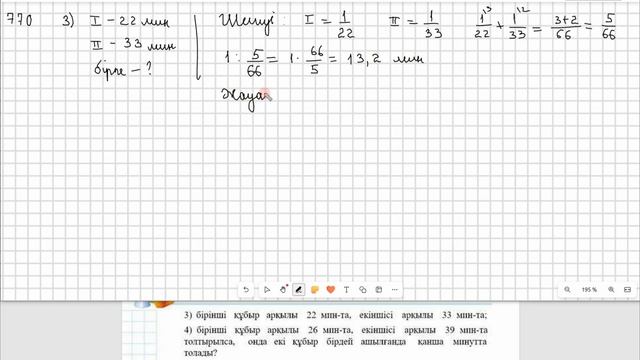 770 3) I – 22 мин
II – 33 мин
бірге – ?
Шешуі: I = 1/22 II = 1/33 1/22 + 1/33 = 3+2/66 = 5/66
1 : 5/66 = 1 · 66/5 = 13,2 мин
Жауа
195 %
3) бірінші құбыр арқылы 22 мин-та, екіншісі арқылы 33 мин-та;
4) бірінші құбыр арқылы 26 мин-та, екіншісі арқылы 39 мин-та
толтырылса, онда екі құбыр бірдей ашылғанда қанша минутта
толады?